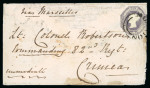 via Marseilles
Lt. Colonel Robertson
Commanding 82nd Regt.
Crimea
immediate